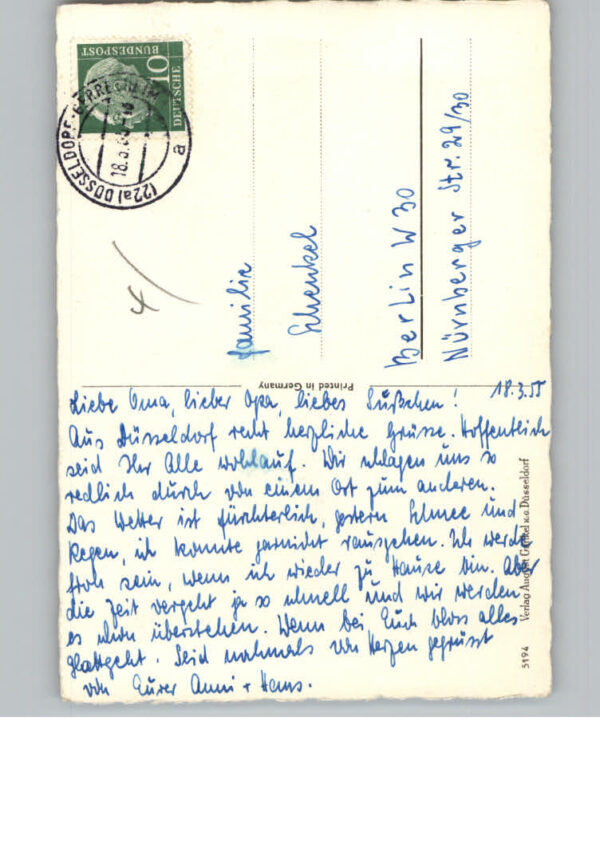 DEUTSCHE
BUNDESPOST
10
(22a) DÜSSELDORF-GERRESHEIM
18.3.55
a
Familie
Schenkel
Berlin W 30
Nürnberger Str. 29/30
Printed in Germany
18.3.55
Liebe Oma, lieber Opa, liebes
Aus Düsseldorf recht herzliche Grüsse. Hoffentlich
seid Ihr Alle wohlauf. Wir schlagen uns so
redlich durch von einem Ort zum anderen.
Das Wetter ist fürchterlich, gestern Schnee und
Regen, ich konnte garnicht rausgehen. Ich werde
froh sein, wenn ich wieder zu Hause bin. Aber
die Zeit vergeht ja so schnell und wir werden
es schon überstehen. Wenn bei Euch bloss alles
glattgeht. Seid nochmals von Herzen gegrüsst
von Eurer Anni + Hans.
5194 Verlag August Gunkel K.G. Düsseldorf